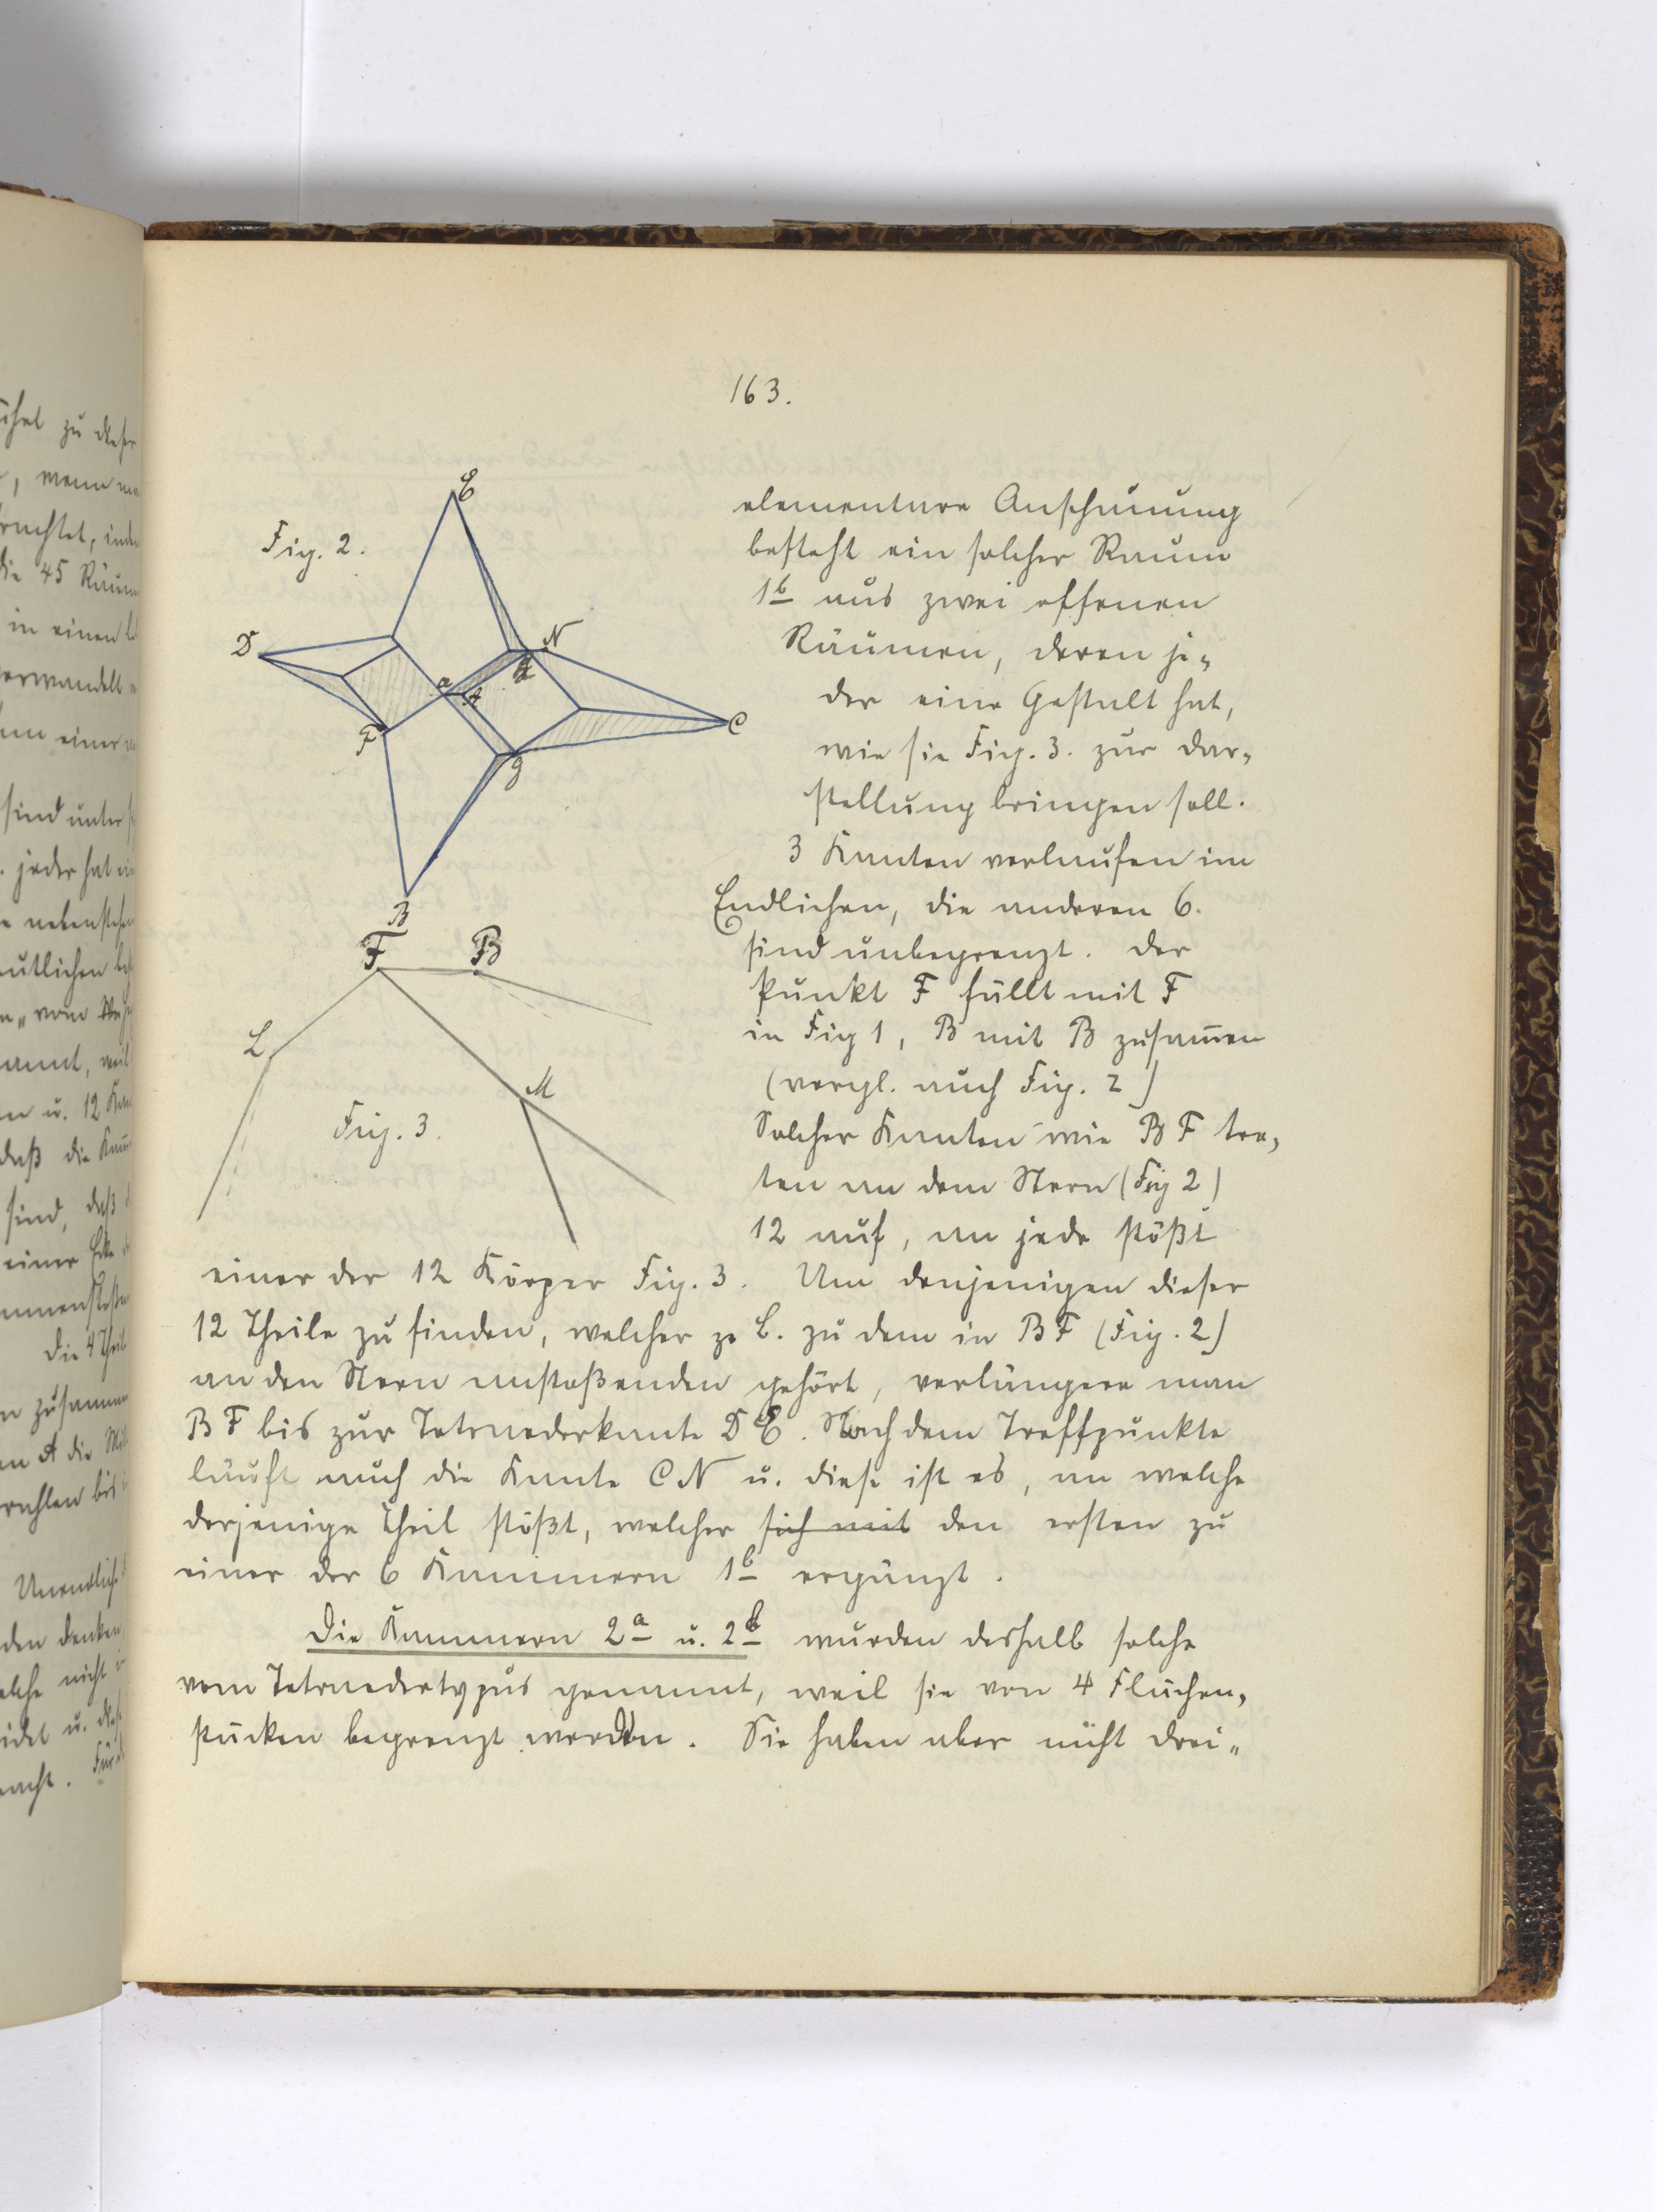 163.
Fig. 2.
E
D
N
H
a
A
F
C
g
B
elementare Anschauung
besteht ein solcher Raum
1b aus zwei offenen
Räumen, deren je-
der eine Gestalt hat,
wie sie Fig. 3. zur Dar-
stellung bringen soll.
3 Kanten verlaufen im
Endlichen, die anderen 6.
sind unbegrenzt. Der
Punkt F fällt mit F
in Fig 1, B mit B zusam̄en
(vergl. auch Fig. 2)
Solcher Kanten wie BF tre-
ten an dem Stern (Fig 2)
12 auf, an jede stößt
F
B
L
M
Fig. 3.
einer der 12 Körper Fig. 3. Um denjenigen dieser
12 Theile zu finden, welcher z. B. zu dem in BF (Fig. 2)
an den Stern anstoßenden gehört, verlängere man
BF bis zur Tetraederkante DE. Nach dem Treffpunkte
läuft auch die Kante CN u. diese ist es, an welche
derjenige Theil stößt, welcher sich mit den ersten zu
einer der 6 Kammern 1b ergänzt.
Die Kammern 2a u. 2b wurden deshalb solche
vom Tetraedertypus genannt, weil sie von 4 Flächen-
stücken begrenzt werden. Sie haben aber nicht drei-
ihrt zu dieser
, wenn
die 45
in einen
erwandelt
einer
sind unter
. jeder hat
12
daß die
sind, daß
einer Ecke
Die 4
an A die
den denken
welche nicht
idet u.